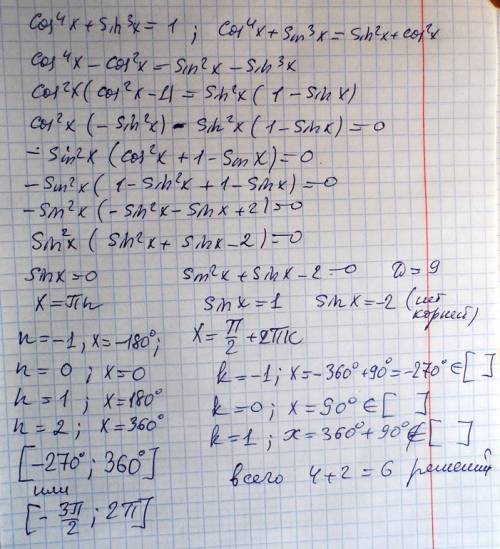 cos⁴x + sin³x = 1 ; cos⁴x + sin³x = sin²x + cos²x
cos⁴x - cos²x = sin²x - sin³x
cos²x (cos²x - 1) = sin²x (1 - sin x)
cos²x (- sin²x) - sin²x (1 - sin x) = 0
- sin²x (cos²x + 1 - sin x) = 0.
- sin²x (1 - sin²x + 1 - sin x) = 0
- sin²x (- sin²x - sin x + 2) = 0
sin²x (sin²x + sin x - 2) = 0
sin x = 0 sin²x + sin x - 2 = 0 D = 9
x = πn sin x = 1 sin x = -2 (нет корней)
n = -1 ; x = -180° ; x = π/2 + 2πk
n = 0 ; x = 0 k = -1 ; x = -360° + 90° = -270° ∈ [ ]
n = 1 ; x = 180° k = 0 ; x = 90° ∈ [ ]
n = 2 ; x = 360° k = 1 ; x = 360° + 90° ∉ [ ]
[-270° ; 360°] всего 4 + 2 = 6 решений
или
[- 3π/2 ; 2π]